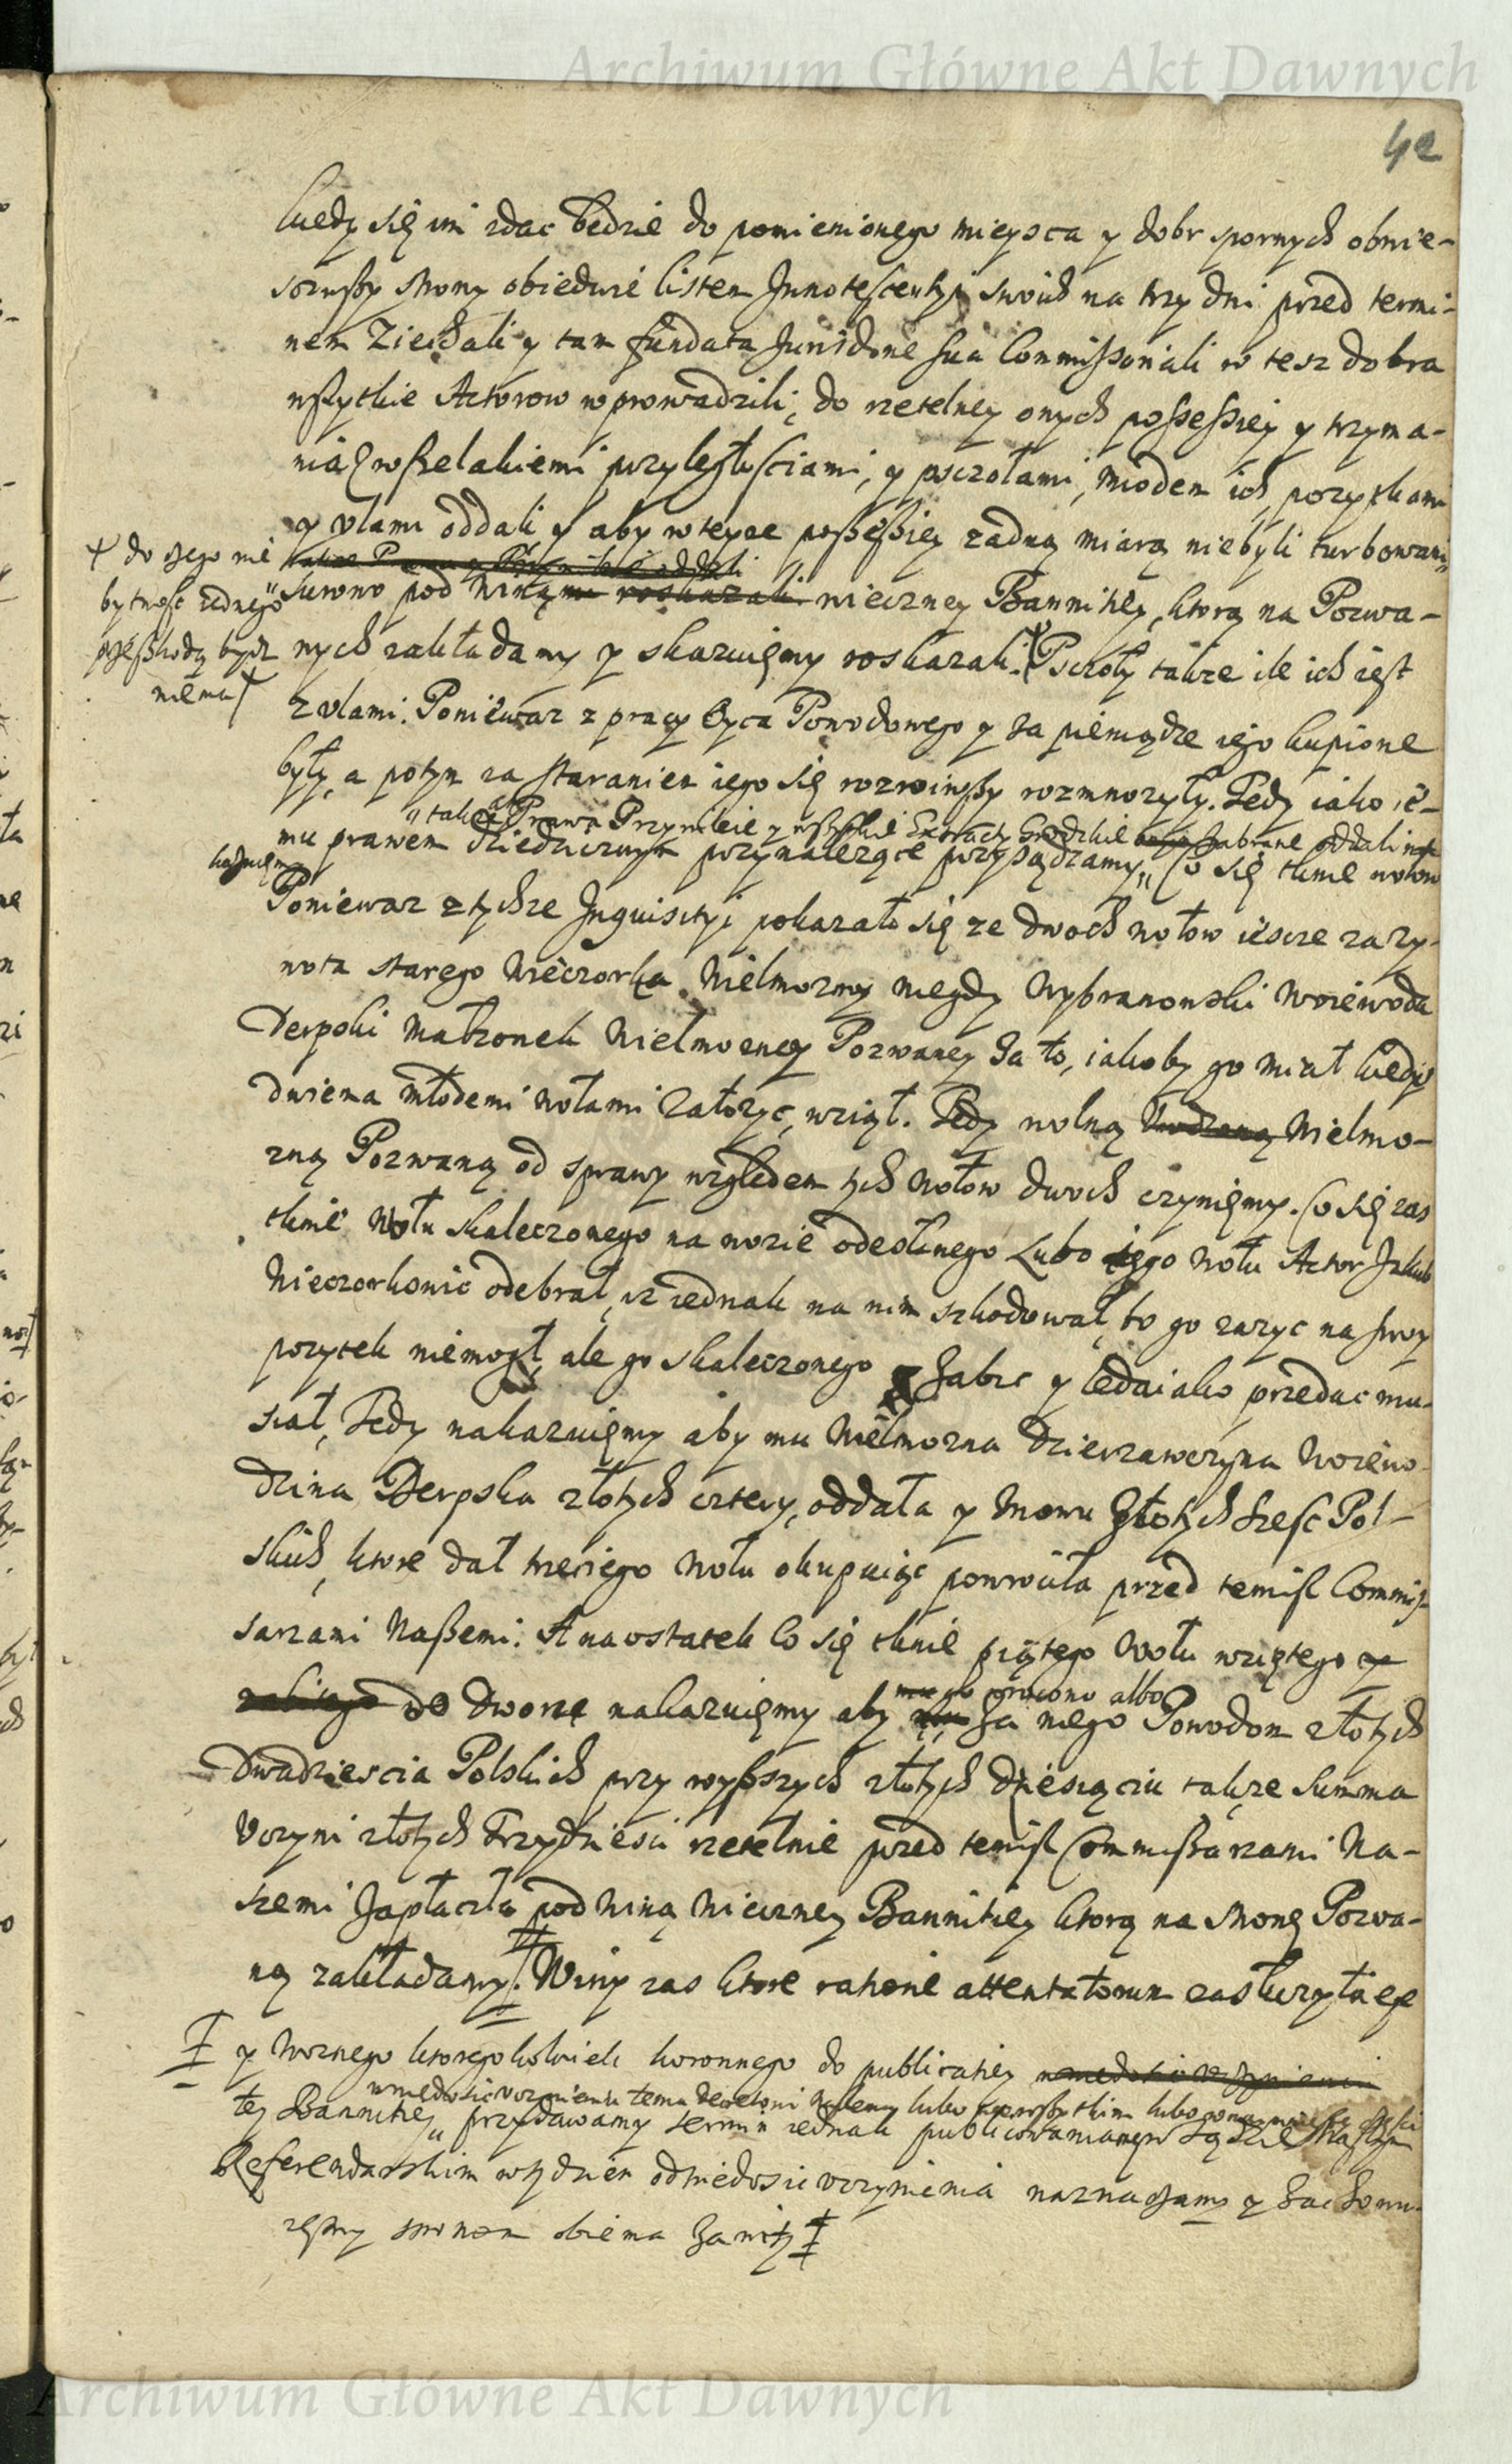 Archiwum Główne Akt Dawnych
42
kiedy się im zdac będzie do pomienionego mieysca y dobr spornych obwie-
sciwszy strony obiedwie listem Innotescentyi swoich na trzy dni przed termi-
nem Ziechali y tam fundata Jurisdone sua Commissoriali w tesz dobra
wszytkie Actorow wprowadzili, do rzetelney onych possessiey y trzyma-
nia z wszelakiemi przyległosciami, y pszczołami, miodem ich, pozytkami
y vlami oddali, y aby w teyze possessiey zadną miarą niebyli turbowani
surowo pod winą wieczney Bannitiey, ktorą na Pozwa-
nych zakładamy y skazuięmy roskazali. Pscioły takze ile ich iest
+ do czego nie
bytnosc iednego
przeszkodą bydz
niema +
z vlami. Poniewaz z pracy Oyca Powodowego y za pieniądze iego kupione
były, a potym za staraniem iego się rozroiwszy rozmnozyły. Tedy iako ie-
" takze Prawa Przywileie y wszytkie Extracty Grodzkie zabrane oddali
mu prawem dziedzicznym przynalezące przysądzamy " Co się tknie wołow
Poniewaz z tychze Inquisityi pokazało się ze dwoch wołow iescze za zy-
wota starego Wieczorka Wielmozny niegdy Wybranowski Woiewoda
Derpski Małzonek Wielmozney Pozwaney Za to, iakoby go miał kiedys
dwiema młodemi wołami załozyc, wziął. Tedy wolną Wielmo-
zną Pozwaną od sprawy względem tych wołow dwoch czynięmy. Co się zas
tknie Wołu skaleczonego na wozie odesłanego Lubo tego wołu Actor Jakub
Wieczorkowic odebrał, iz iednak na nim szkodował, bo go zazyc na swoy
pozytek niemogł, ale go skaleczonego Zabic y ledaiako przedac mu-
siał, Tedy nakazuięmy aby mu Wielmozna Dzierzawczyna Woiewo-
dzina Derpska złotych cztery, oddała y znowu Złotych szesc Pol-
skich, ktore dał trzeciego wołu okupuiąc powrociła przed temisz Commis-
sarzami Naszemi. A na ostatek Co się tknie piątego Wołu wziętego
do dworu nakazuięmy aby mu go wrocono albo Za niego Powodom złotych
Dwadziescia Polskich przy wyszszych złotych dziesiąciu takze Summa
Uczyni złotych Trzydziesci rzetelnie przed temisz Commissarzami Na-
szemi Zapłaciła pod winą wieczney Bannitiey ktorą na stronę Pozwa-
ną zakładamy. Winy zas ktore ratione attentatorum zasłuzyła
‡ y Woznego ktoregokolwiek koronnego do publicatiey
tey Bannitiey " przydawamy termin iednak publicowania
Referendarskim w tydzien od niedosic vczynienia naznaczamy y Zachowu-
ięmy stronom obiema Zawity ‡
Archiwum Główne Akt Dawnych